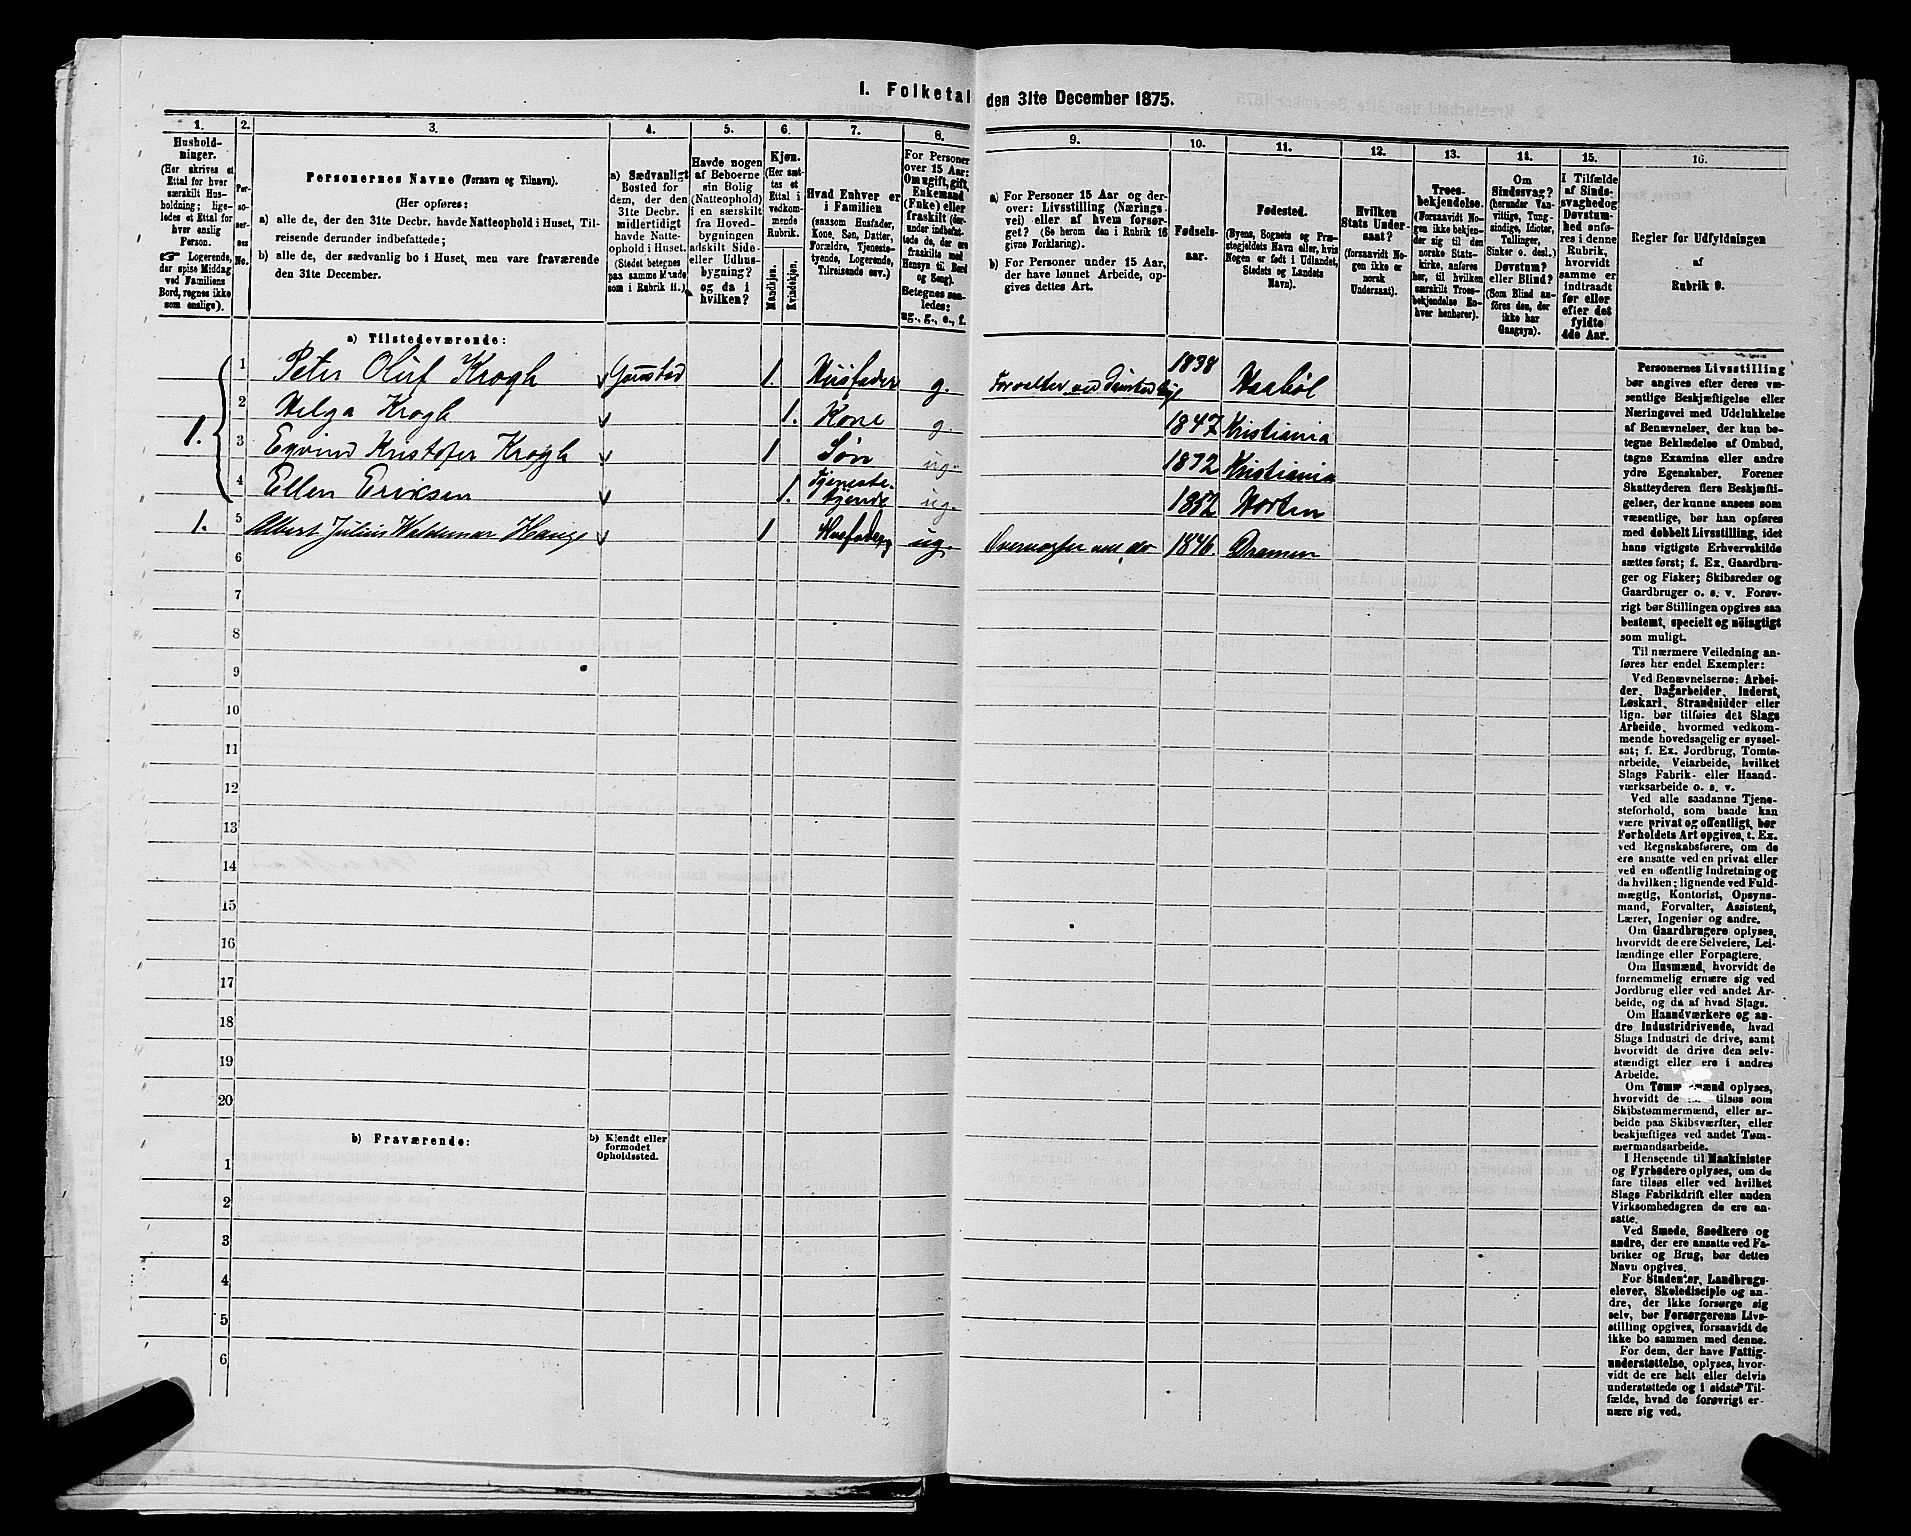 1. Folketal den 31te December 1875.
1. 2. 3. 4. 5. 6. 7. 8. 9. 10. 11. 12. 13. 14. 15. 16.
Hushold-
ninger.
(Her skrives et
Ettal for hver
særskilt Hus-
holdning; lige-
ledes et Ettal for
hver enslig
Person.
☞ Logerende,
der spise Middag
ved Familiens
Bord, regnes ikke
som enslige).
Per-
so-
ner-
nes
No.
Personernes Navne (Fornavn og Tilnavn).
(Her opføres:
a) alle de, der den 31te Decbr. havde Natteophold i Huset, Til-
reisende derunder indbefattede;
b) alle de, der sædvanlig bo i Huset, men vare fraværende
den 31te December.
a) Sædvanligt
Bosted for
dem, der den
31te Decbr.
midlertidigt
havde Natte-
ophold i Huset.
(Stedet betegnes
paa samme Maade
som i Rubrik 11.)
Havde nogen
af Beboerne
sin Bolig
(Natteophold)
i en særskilt
fra Hoved-
bygningen
adskilt Side-
eller Udhus-
bygning?
og da i
hvilken?
Kjøn.
(Her sæt-
tes et
Ettal i
vedkom-
mende
Rubrik.
Mandkjøn.
Kvindekjøn.
Hvad Enhver er
i Familien
(saasom Husfader,
Kone, Søn, Datter,
Forældre, Tjeneste-
tyende, Logerende,
Tilreisende osv.)
For Personer
over 15 Aar:
Om ugift, gift,
Enkemand
(Enke) eller
fraskilt (der-
under indbefat-
tede de, der ere
fraskilte med
Hensyn til Bord
og Seng).
Betegnes saa-
ledes:
ug., g., e., f.
a) For Personer 15 Aar og der-
over: Livsstilling (Nærings-
vei) eller af hvem forsør-
get? (Se herom den i Rubrik 16
givne Forklaring).
b) For Personer under 15 Aar,
der have lønnet Arbeide, op-
gives dettes Art.
Fødsels-
aar.
Fødested.
(Byens, Sognets og Præ-
stegjeldets Navn eller, hvis
Nogen er født i Udlandet,
Stedets og Landets
Navn).
Hvilken
Stats Under-
saat?
(forsaavidt No-
gen ikke er
norsk
Undersaat).
Troes-
bekjendelse.
(Forsaavidt No-
gen ikke bekjen-
der sig til den
norske Stats-
kirke, anføres
her, til hvilken
særskilt Troes-
bekjendelse En-
hver henhører).
Om
Sindssvag?
(herunder Van-
vittige, Tung-
sindige, Idioter,
Tullinger,
Sinker o. desl.)
Døvstum?
eller Blind?
(Som Blind an-
føres den, der
ikke har
Gangsyn).
I Tilfælde
af Sinds-
svaghed og
Døvstum-
hed anfø-
res i denne
Rubrik,
hvorvidt
samme er
indtraadt
før eller
efter det
fyldte
4de Aar.
Regler for Udfyldningen
af
Rubrik 9.
a) Tilstedeværende:
1 Peter Oluf Krogh Gaustad 1. Husfader g. Forvalter ved Gaustad 1838
2 Helga Krogh 1. Kone g. 1847 Kristiania
1. 3 Eyvind Kristofer Krogh 1 Søn ug. 1872 Kristiania
4 Ellen Eriksen 1. Tjeneste-
tyende ug. 1852 Horten
1. 5 Albert Julius Waldemar Hauge 1 Husfader ug. ved do 1846. Dramen
6
7
8
9
10
11
12
13
14
15
16
17
18
19
20
b) Fraværende:
b) Kjendt eller
formodet
Opholdssted.
1
2
3
4
5
6
Personernes Livsstilling
bør angives efter deres væ-
sentlige Beskjæftigelse eller
Næringsvei med Udelukkelse
af Benævnelser, der kun be-
tegne Beklædelse af Ombud,
tagne Examina eller andre
ydre Egenskaber. Forener
Skatteyderen flere Beskjæfti-
gelser, der kunne ansees som
væsentlige, bør han opføres
med dobbelt Livsstilling, idet
hans vigtigste Erhvervskilde
sættes først; f. Ex. Gaardbru-
ger og Fisker; Skibsreder og
Gaardbruger o. s. v. Forøv-
rigt bør Stillingen opgives saa
bestemt, specielt og nøiagtigt
som muligt.
Til nærmere Veiledning an-
føres her endel Exempler:
Ved Benævnelserne: Arbei-
der, Dagarbeider, Inderst,
Løskarl, Strandsidder eller
lign. bør tilføies det Slags
Arbeide, hvormed vedkom-
mende hovedsagelig er syssel-
sat; f. Ex. Jordbrug, Tomte-
arbeide, Veiarbeide, hvilket
Slags Fabrik- eller Haand-
værksarbeide o. s. v.
Ved alle saadanne Tjene-
steforhold, som baade kan
være privat og offentligt, bør
Forholdets Art opgives, t. Ex.
ved Regnskabsførere, om de
ere ansatte ved en privat eller
ved en offentlig Indretning og
da hvilken; lignende ved Fuld-
mægtig, Kontorist, Opsyns-
mand, Forvalter, Assistent,
Lærer, Ingeniør og andre.
Om Gaardbrugere oplyses,
hvorvidt de ere Selveiere, Lei-
lændinge eller Forpagtere.
Om Husmænd, hvorvidt de
fornemmelig ernære sig ved
Jordbrug eller ved andet Ar-
beide, og da af hvad Slags.
Om Haandværkere og an-
dre Industridrivende, hvad
Slags Industri de drive, samt
hvorvidt de drive den selv-
stændigt eller ere i andres
Arbeide.
Om Tømmermænd oplyses,
hvorvidt de tilsøs som
Skibstømmermænd, eller ar-
beide paa Skibsværfter, eller
beskjæftiges ved andet Tøm-
mermandsarbeide.
I Henseende til Maskinister
og Fyrbødere oplyses, om de
fare tilsøs eller ved hvilket
Slags Fabrikdrift eller anden
Virksomhedsgren de ere an-
satte.
Ved Smede, Snedkere og
andre, der ere ansatte ved Fa-
briker og Brug, bør dettes
Navn opgives.
For Studenter, Landbrugs-
elever, Skoledisciple og an-
dre, der ikke forsørge sig
selv, bør Forsørgerens Livs-
stilling opgives, forsaavidt de
ikke bo sammen med denne.
For dem, der have Fattig-
understøttelse, oplyses, hvor-
vidt de ere helt eller delvis
understøttede og i sidste Til-
fælde, hvad de forøvrigt er-
nære sig ved.